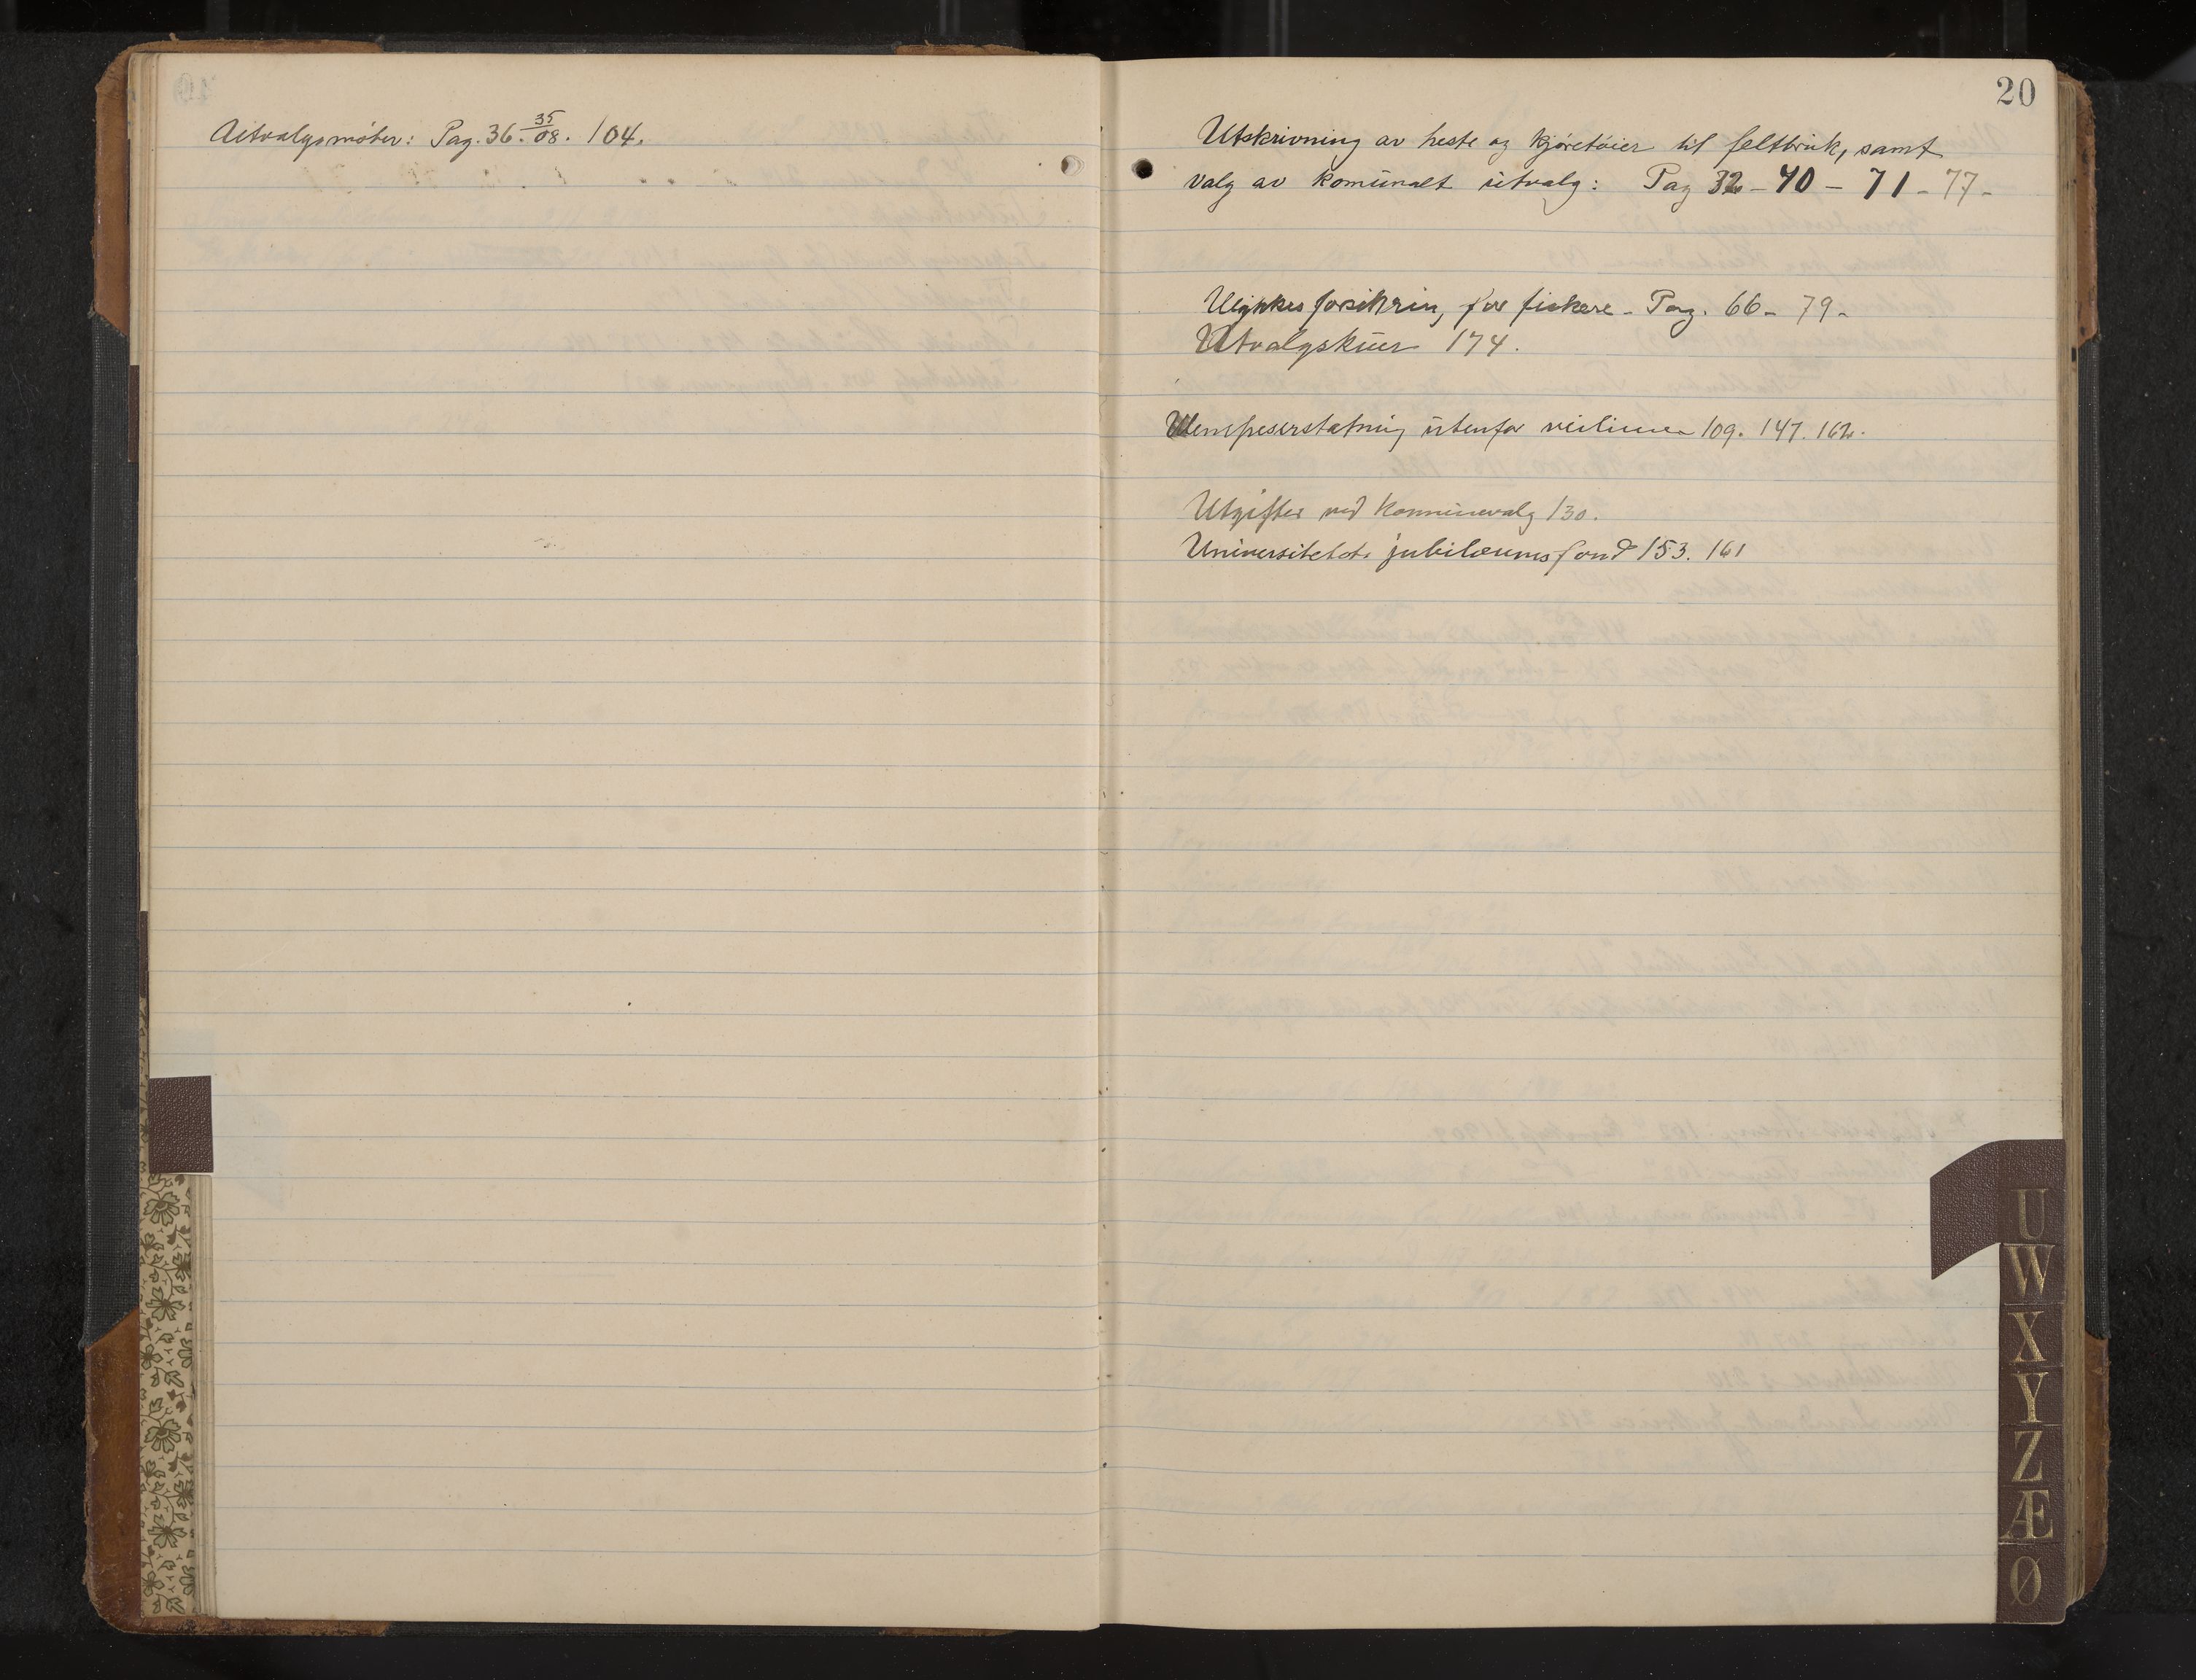 Utvalgsmøter: Pag. 36. 35/08. 104.
20
Utskrivning av heste og kjøretøier til feltbruk, samt
valg av komunalt utvalg: Pag 32 - 40 - 71 - 77 -
Ulykkesforsikrin, for fiskere - Pag. 66 - 79 -
Utvalgskuer 174.
Ulempeserstatning utenfor veilinien 109. 147. 162.
Utgifter ved kommunevalg 130.
Universitetets jubilæumsfond 153. 161
U
W
X
Y
Z
Æ
Ø